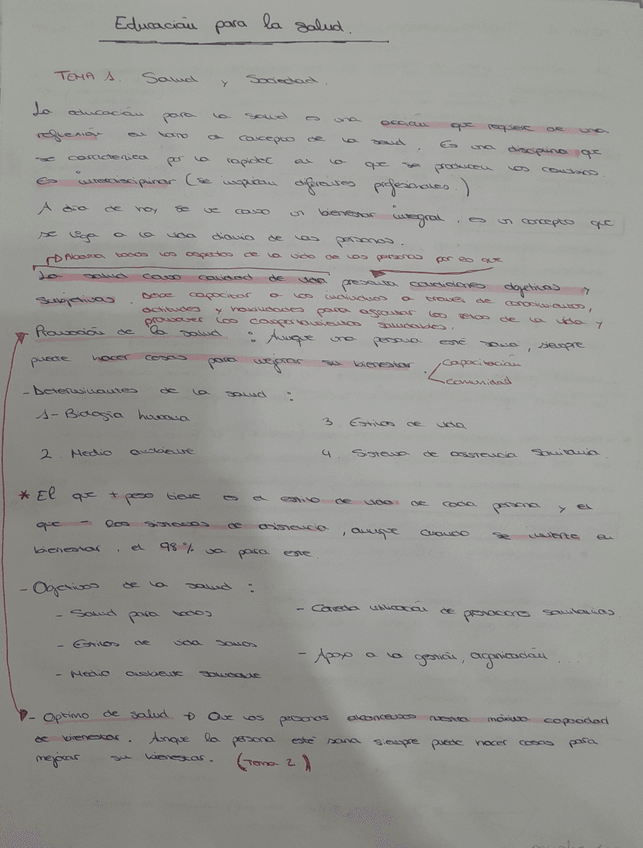 Educación para la salud.
TEMA 1. Salud y Sociedad.
La educación para la salud es una acción que requiere de una
reflexión en torno a concepto de la salud. Es una disciplina que
se caracteriza por la rapidez en la que se producen los cambios.
Es "interdisciplinar" (se implican diferentes profesionales.)
A día de hoy, se ve como un bienestar integral, es un concepto que
se liga a la vida diaria de las personas.
Abarca todos los aspectos de la vida de las personas por eso que
La salud como calidad de vida presenta condiciones objetivas y
subjetivas. Debe capacitar a los individuos a través de conocimientos,
actitudes y habilidades para afrontar los retos de la vida y
promover los comportamientos saludables.
- Promoción de la salud : Aunque una persona esté sana, siempre
puede hacer cosas para mejorar su bienestar. Capacitación
comunidad
- Determinantes de la salud :
1- Biología humana 3. Estilos de vida
2. Medio ambiente 4. Sistema de asistencia sanitaria.
* El que + peso tiene es el estilo de vida de cada persona y el
que - los sistemas de asistencia, aunque cuando se invierte en
bienestar, el 98% va para este.
- Objetivos de la salud :
- Salud para todos - Correcta utilización de prestaciones sanitarias
- Estilos de vida sanos - Apoyo a la gestión, organización.
- Medio ambiente saludable
- Optimo de salud → Que las personas alcancemos nuestra máxima capacidad
de bienestar. Aunque la persona esté sana siempre puede hacer cosas para
mejorar su bienestar. (Tema 2)